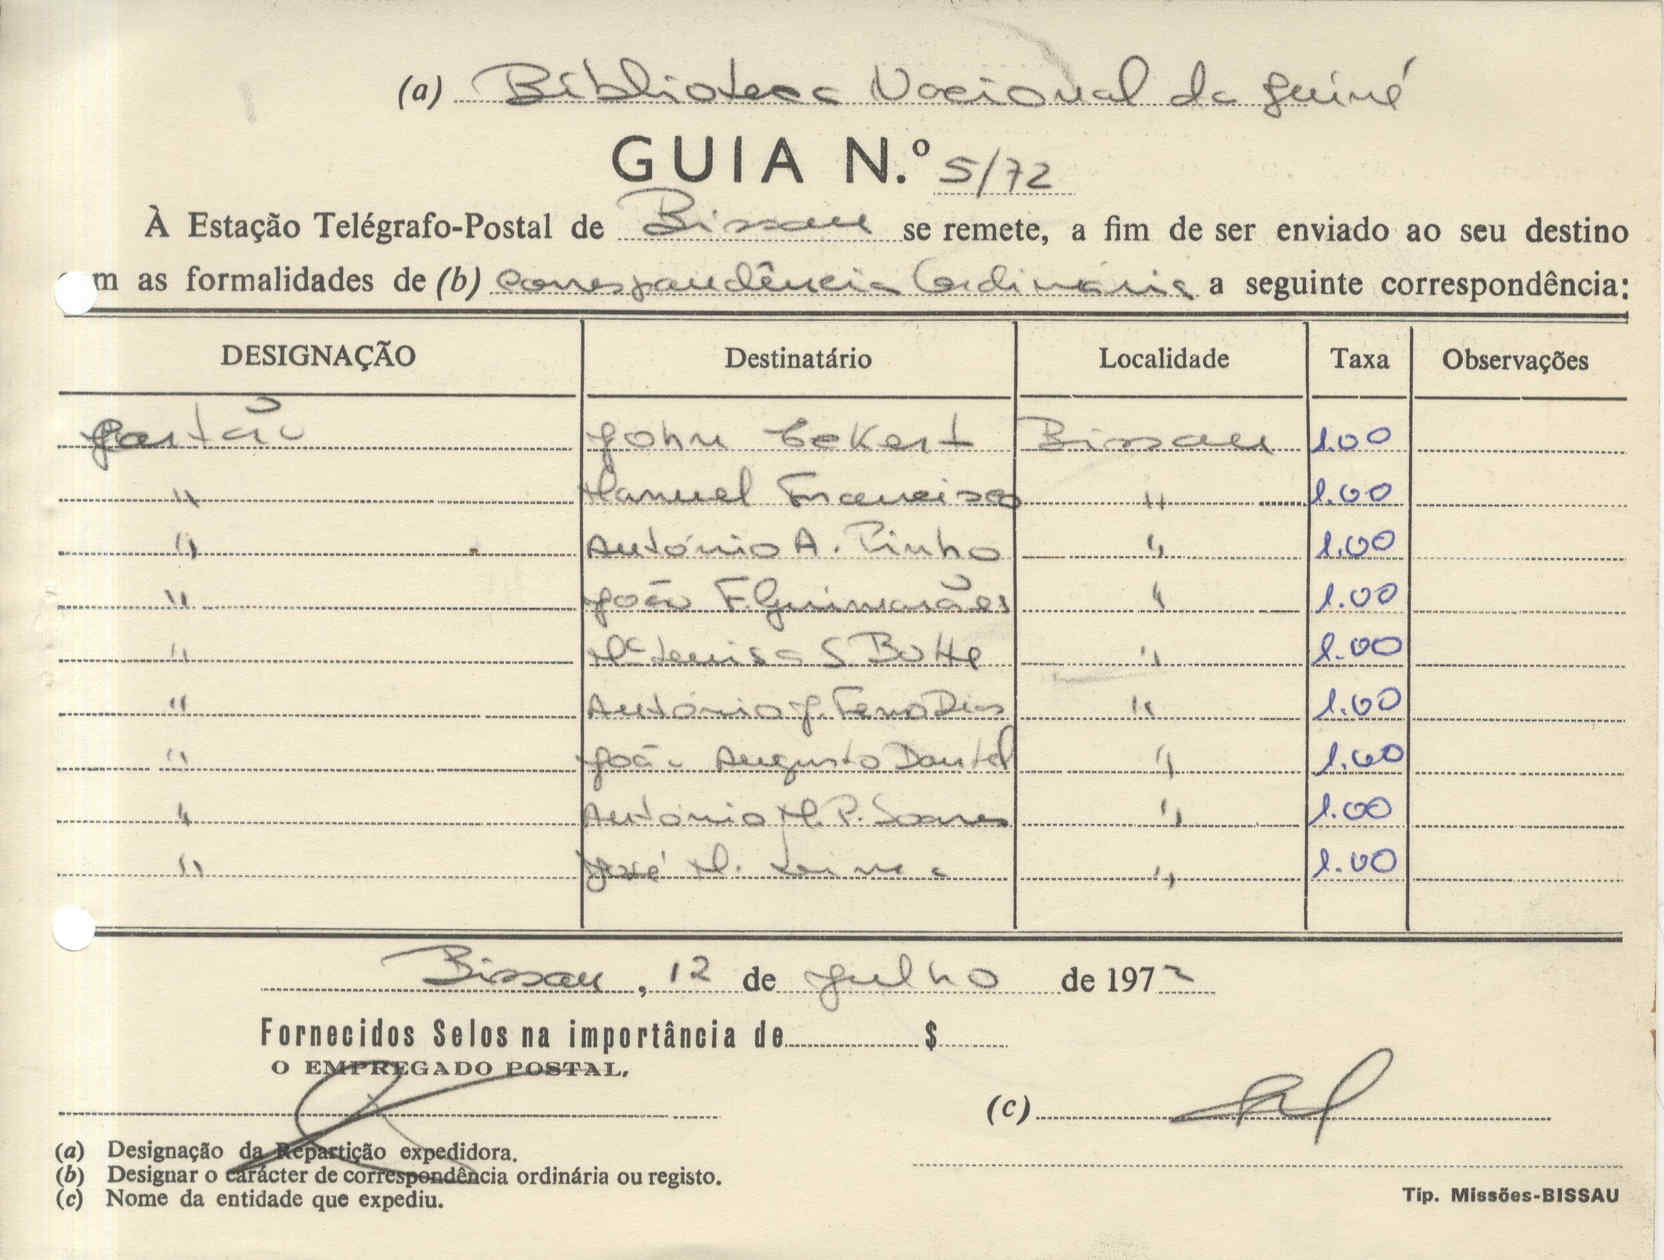 (a) Biblioteca Nacional da Guiné
GUIA N.º 5/72
À Estação Telégrafo-Postal de Bissau se remete, a fim de ser enviado ao seu destino
m as formalidades de (b) correspondência Ordinária a seguinte correspondência:
DESIGNAÇÃO Destinatário Localidade Taxa Observações
Postão John Eckert Bissau 1.00
" Manuel Francisco " 1.00
" António A. Pinho " 1.00
" João F. Guimarães " 1.00
" Mª Luisa S " 1.00
" António J. Dias " 1.00
" João Augusto " 1.00
" António M. P. Soares " 1.00
" José M. Lima " 1.00
Bissau, 12 de Julho de 1972
Fornecidos Selos na importância de $
O EMPREGADO POSTAL,
(c)
(a) Designação da Repartição expedidora.
(b) Designar o carácter de correspondência ordinária ou registo.
(c) Nome da entidade que expediu.
Tip. Missões-BISSAU